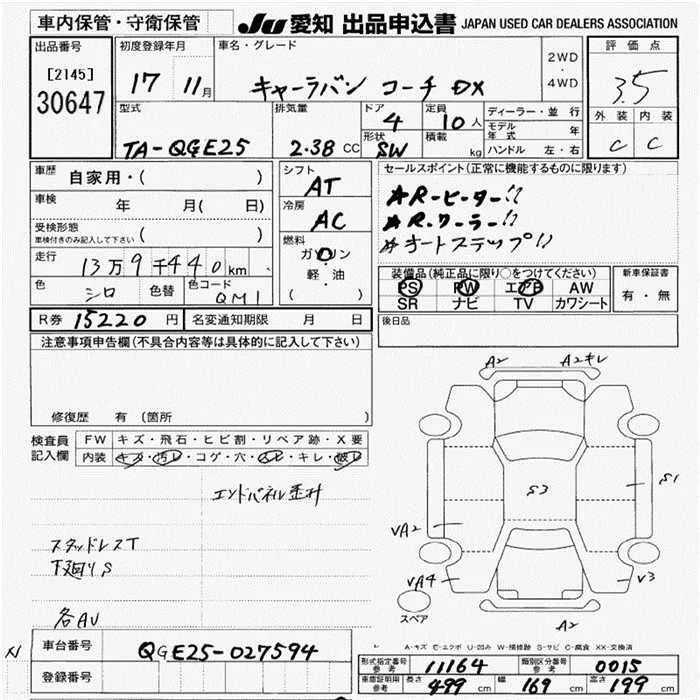 車内保管・守衛保管
JU 愛知 出品申込書 JAPAN USED CAR DEALERS ASSOCIATION
出品番号
[2145]
30647
初度登録年月
17 11月
車名・グレード
キャーラバン コーチ DX
2WD
4WD
評価点
3.5
外装 内装
C C
型式
TA-QGE25
排気量
2.38 CC
ドア
4
形状
SW
定員
10人
積載
kg
ディーラー・並行
モデル年式 年
ハンドル 左・右
車歴 自家用・( )
車検 年 月( 日)
受検形態
車検付きのみ記入して下さい ( )
走行 13万9千440km
色 シロ 色替 色コード QM1
シフト
AT
冷房
AC
燃料
ガソリン
軽・油
( )
セールスポイント(正常に機能するものに限ります)
★R-ヒーター!!
★R.クーラー!!
★オートステップ!!
装備品(純正品に限り○をつけてください)
PS PW エアB AW
SR ナビ TV カワシート
新車保証書
有・無
後日品
R券 15220円 名変通知期限 月 日
注意事項申告欄(不具合内容等は具体的に記入して下さい)
修復歴 有 (箇所 )
検査員記入欄
FW キズ・飛石・ヒビ割・リペア跡・X要
内装 キズ・汚レ・コゲ・穴・スレ・キレ・破レ
エンドパネル歪み
スタッドレスT
下廻りS
各AU
A2 A2キレ
S3
S1
VA2
VA4
V3
A2
スペア
A-キズ E-エクボ U-凹み W-補修跡 S-サビ C-腐食 XX-交換済
車台番号 QGE25-027594
登録番号
型式指定番号 参考 11164
類別区分番号 参考 0015
車庫証明用 参考 長さ 499cm 幅 169cm 高さ 199cm